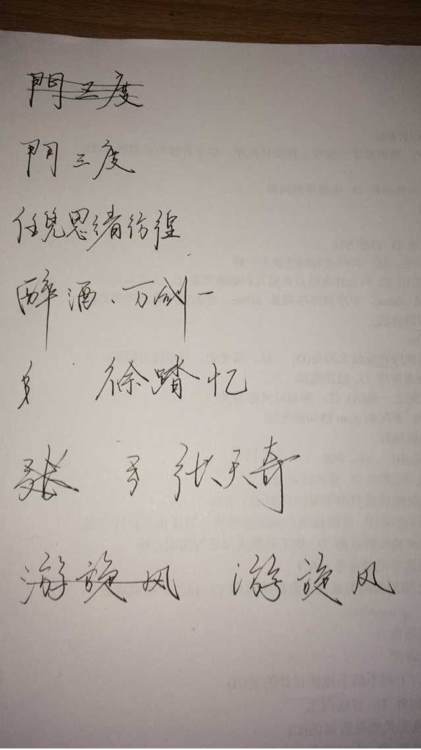 門三度
門三度
任凭思绪彷徨
醉酒、万剑一
徐踏忆
张 张天奇
游旋风 游旋风